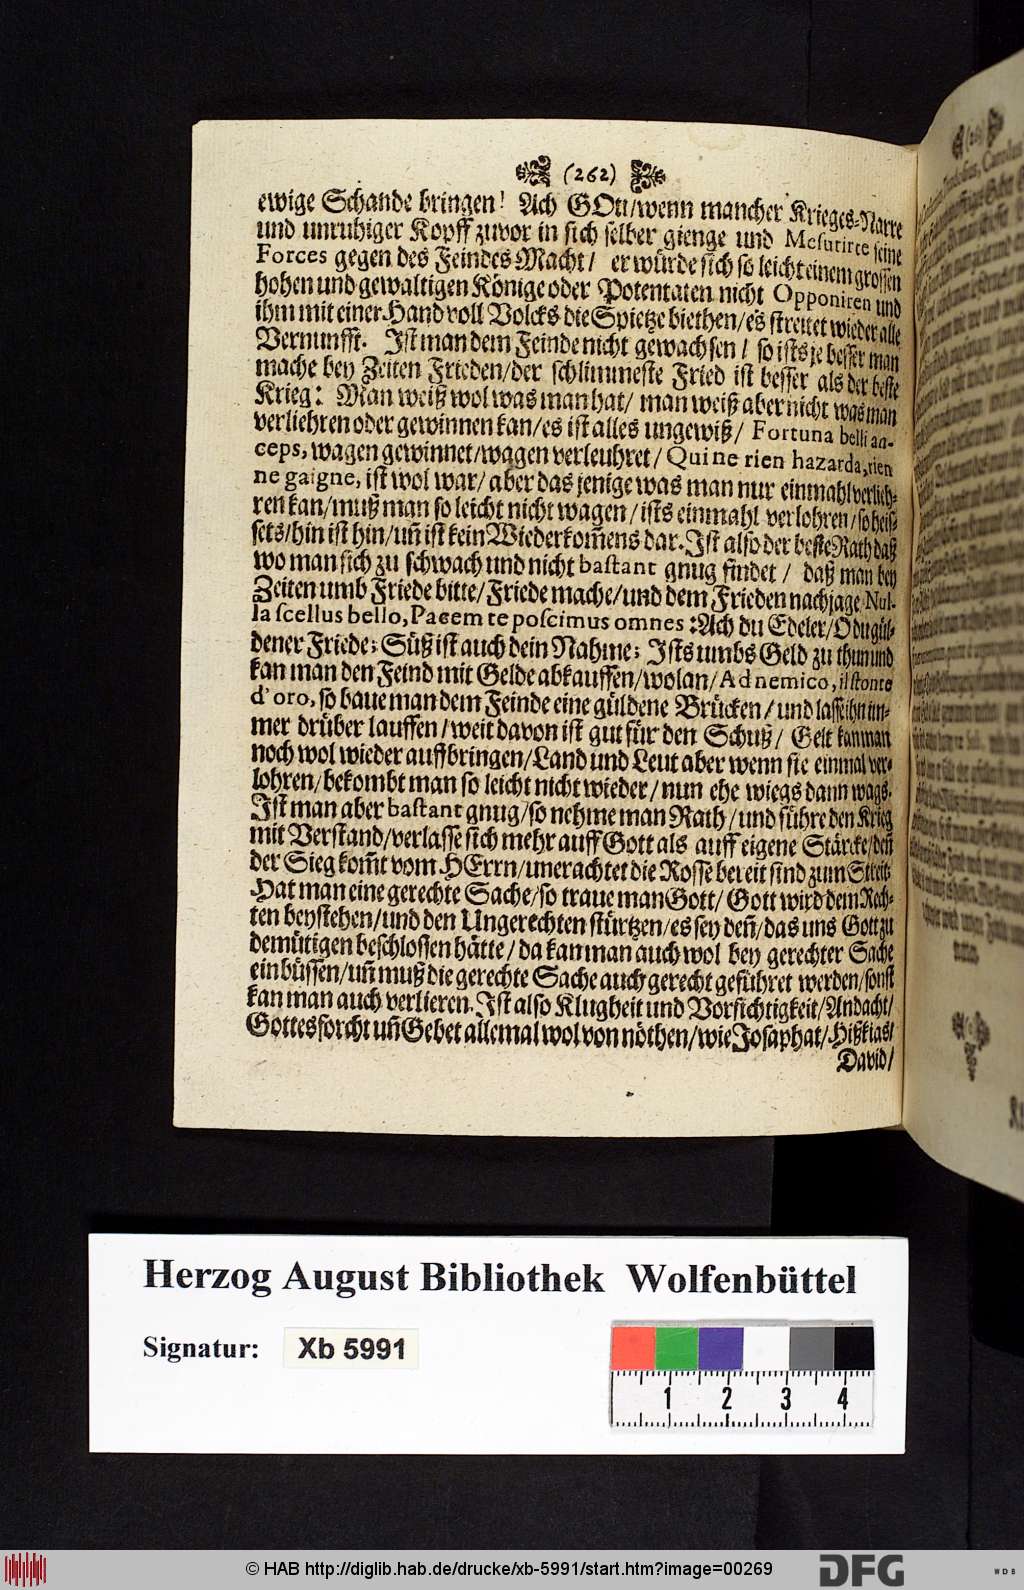 (262)
ewige Schande bringen! Ach GOtt/wenn mancher Krieges-Narre
und unruhiger Kopff zuvor in sich selber gienge und Mesutirte seine
Forces gegen des Feindes Macht/ er würde sich so leicht einem grossen
hohen und gewaltigen Könige oder Potentaten nicht Opponiren und
ihm mit einer Hand voll Volcks die Spietze biethen/es streitet wieder alle
Vernunfft. Ist man dem Feinde nicht gewachsen/ so ists je besser man
mache bey Zeiten Frieden/der schlimmeste Fried ist besser als der beste
Krieg: Man weiß wol was man hat/ man weiß aber nicht was man
verliehren oder gewinnen kan/es ist alles ungewiß/ Fortuna belli an-
ceps, wagen gewinnet/wagen verleuhret/ Qui ne rien hazarda, rien
ne gaigne, ist wol war/ aber das jenige was man nur einmahl verlieh-
ren kan/muß man so leicht nicht wagen/ists einmahl verlohren/so heis-
sets/hin ist hin/uñ ist kein Wiederkom̃ens dar. Ist also der beste Rath daß
wo man sich zu schwach und nicht bastant gnug findet/ daß man bey
Zeiten umb Friede bitte/Friede mache/und dem Frieden nachjage Nul-
la scellus bello, Pacem te poscimus omnes: Ach du Edeler/O du gül-
dener Friede; Süß ist auch dein Nahme; Ists umbs Geld zu thun und
kan man den Feind mit Gelde abkauffen/wolan/Ad nemico, il stonte
d' oro, so baue man dem Feinde eine güldene Brücken/und lasse ihn im-
mer drüber lauffen/weit davon ist gut für den Schuß/ Gelt kan man
noch wol wieder auffbringen/Land und Leut aber wenn sie einmal ver-
lohren/bekombt man so leicht nicht wieder/nun ehe wiegs dann wags.
Ist man aber bastant gnug/so nehme man Rath/und führe den Krieg
mit Verstand/verlasse sich mehr auff Gott als auff eigene Stärcke/deñ
der Sieg kom̃t vom HErrn/unerachtet die Rosse bereit sind zum Streit
Hat man eine gerechte Sache/so traue man Gott/Gott wird dem Rech-
ten beystehen/und den Ungerechten stürtzen/es sey deñ/das uns Gott zu
demütigen beschlossen hätte/da kan man auch wol bey gerechter Sache
einbüssen/uñ muß die gerechte Sache auch gerecht geführet werden/sonst
kan man auch verlieren. Ist also Klugheit und Vorsichtigkeit/Andacht/
Gottesforcht uñ Gebet allemal wol von nöthen/wie Josaphat/Hißkias/
David/
Herzog August Bibliothek Wolfenbüttel
Signatur: Xb 5991
1 2 3 4
© HAB http://diglib.hab.de/drucke/xb-5991/start.htm?image=00269
DFG
WDB